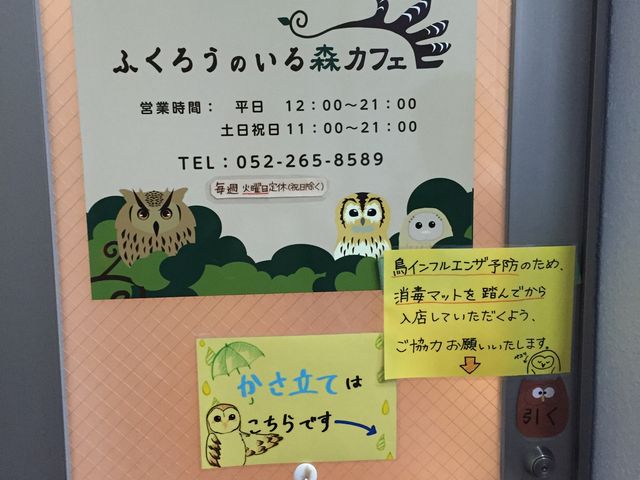 ふくろうのいる森カフェ
営業時間： 平日 12：00〜21：00
土日祝日 11：00〜21：00
TEL：052-265-8589
毎週 火曜日定休(祝日除く)
鳥インフルエンザ予防のため、
消毒マットを踏んでから
入店していただくよう、
ご協力お願いいたします。
かさ立ては
こちらです
引く